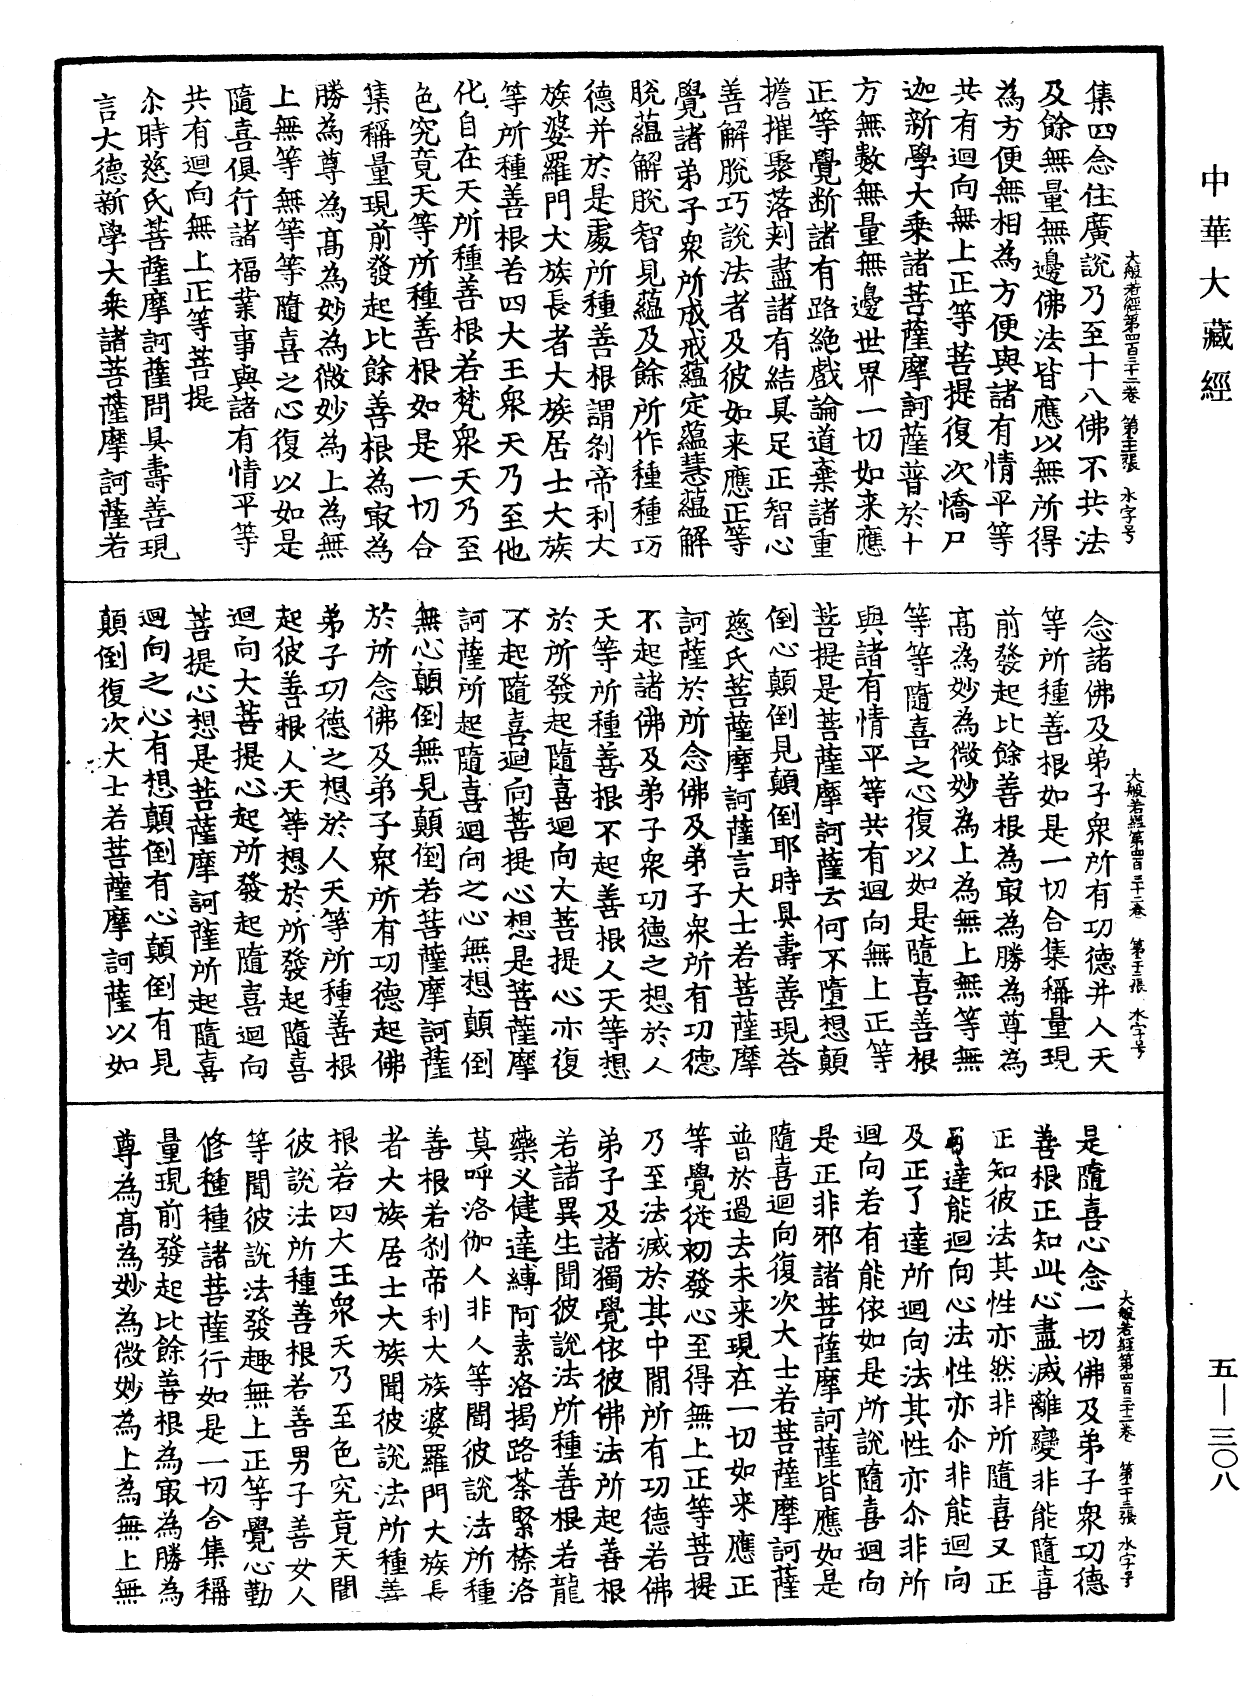 中華大藏經
大般若經第四百三十二卷　第三十一張　水字号
集四念住廣說乃至十八佛不共法
及餘無量無邊佛法皆應以無所得
為方便無相為方便與諸有情平等
共有迴向無上正等菩提復次憍尸
迦新學大乘諸菩薩摩訶薩普於十
方無數無量無邊世界一切如来應
正等覺断諸有路絶戲論道棄諸重
擔摧聚落刺盡諸有結具足正智心
善解脫巧說法者及彼如来應正等
覺諸弟子衆所成戒蘊定蘊慧蘊解
脫蘊解脫智見蘊及餘所作種種功
德并於是處所種善根謂刹帝利大
族婆羅門大族長者大族居士大族
等所種善根若四大王衆天乃至他
化自在天所種善根若梵衆天乃至
色究竟天等所種善根如是一切合
集稱量現前發起比餘善根為㝡為
勝為尊為髙為妙為微妙為上為無
上無等無等等隨喜之心復以如是
隨喜俱行諸福業事與諸有情平等
共有迴向無上正等菩提
尒時慈氏菩薩摩訶薩問具壽善現
言大德新學大乘諸菩薩摩訶薩若
大般若經第四百三十二卷　第三十二張　水字号
念諸佛及弟子衆所有功德并人天
等所種善根如是一切合集稱量現
前發起比餘善根為㝡為勝為尊為
髙為妙為微妙為上為無上無等無
等等隨喜之心復以如是隨喜善根
與諸有情平等共有迴向無上正等
菩提是菩薩摩訶薩云何不墮想顛
倒心顛倒見顛倒耶時具壽善現荅
慈氏菩薩摩訶薩言大士若菩薩摩
訶薩於所念佛及弟子衆所有功德
不起諸佛及弟子衆功德之想於人
天等所種善根不起善根人天等想
於所發起隨喜迴向大菩提心亦復
不起隨喜迴向菩提心想是菩薩摩
訶薩所起隨喜迴向之心無想顛倒
無心顛倒無見顛倒若菩薩摩訶薩
於所念佛及弟子衆所有功德起佛
弟子功德之想於人天等所種善根
起彼善根人天等想於所發起隨喜
迴向大菩提心起所發起隨喜迴向
菩提心想是菩薩摩訶薩所起隨喜
迴向之心有想顛倒有心顛倒有見
顛倒復次大士若菩薩摩訶薩以如
大般若經第四百三十二卷　第三十三張　水字号
是隨喜心念一切佛及弟子衆功德
善根正知此心盡滅離變非能隨喜
正知彼法其性亦然非所隨喜又正
了達能迴向心法性亦尒非能迴向
及正了達所迴向法其性亦尒非所
迴向若有能依如是所說隨喜迴向
是正非邪諸菩薩摩訶薩皆應如是
隨喜迴向復次大士若菩薩摩訶薩
普於過去未来現在一切如来應正
等覺從初發心至得無上正等菩提
乃至法滅於其中閒所有功德若佛
弟子及諸獨覺依彼佛法所起善根
若諸異生聞彼說法所種善根若龍
藥叉健達縛阿素洛揭路荼緊㮈洛
莫呼洛伽人非人等聞彼說法所種
善根若刹帝利大族婆羅門大族長
者大族居士大族聞彼說法所種善
根若四大王衆天乃至色究竟天聞
彼說法所種善根若善男子善女人
等聞彼說法發趣無上正等覺心勤
修種種諸菩薩行如是一切合集稱
量現前發起比餘善根為㝡為勝為
尊為髙為妙為微妙為上為無上無
五—三〇八